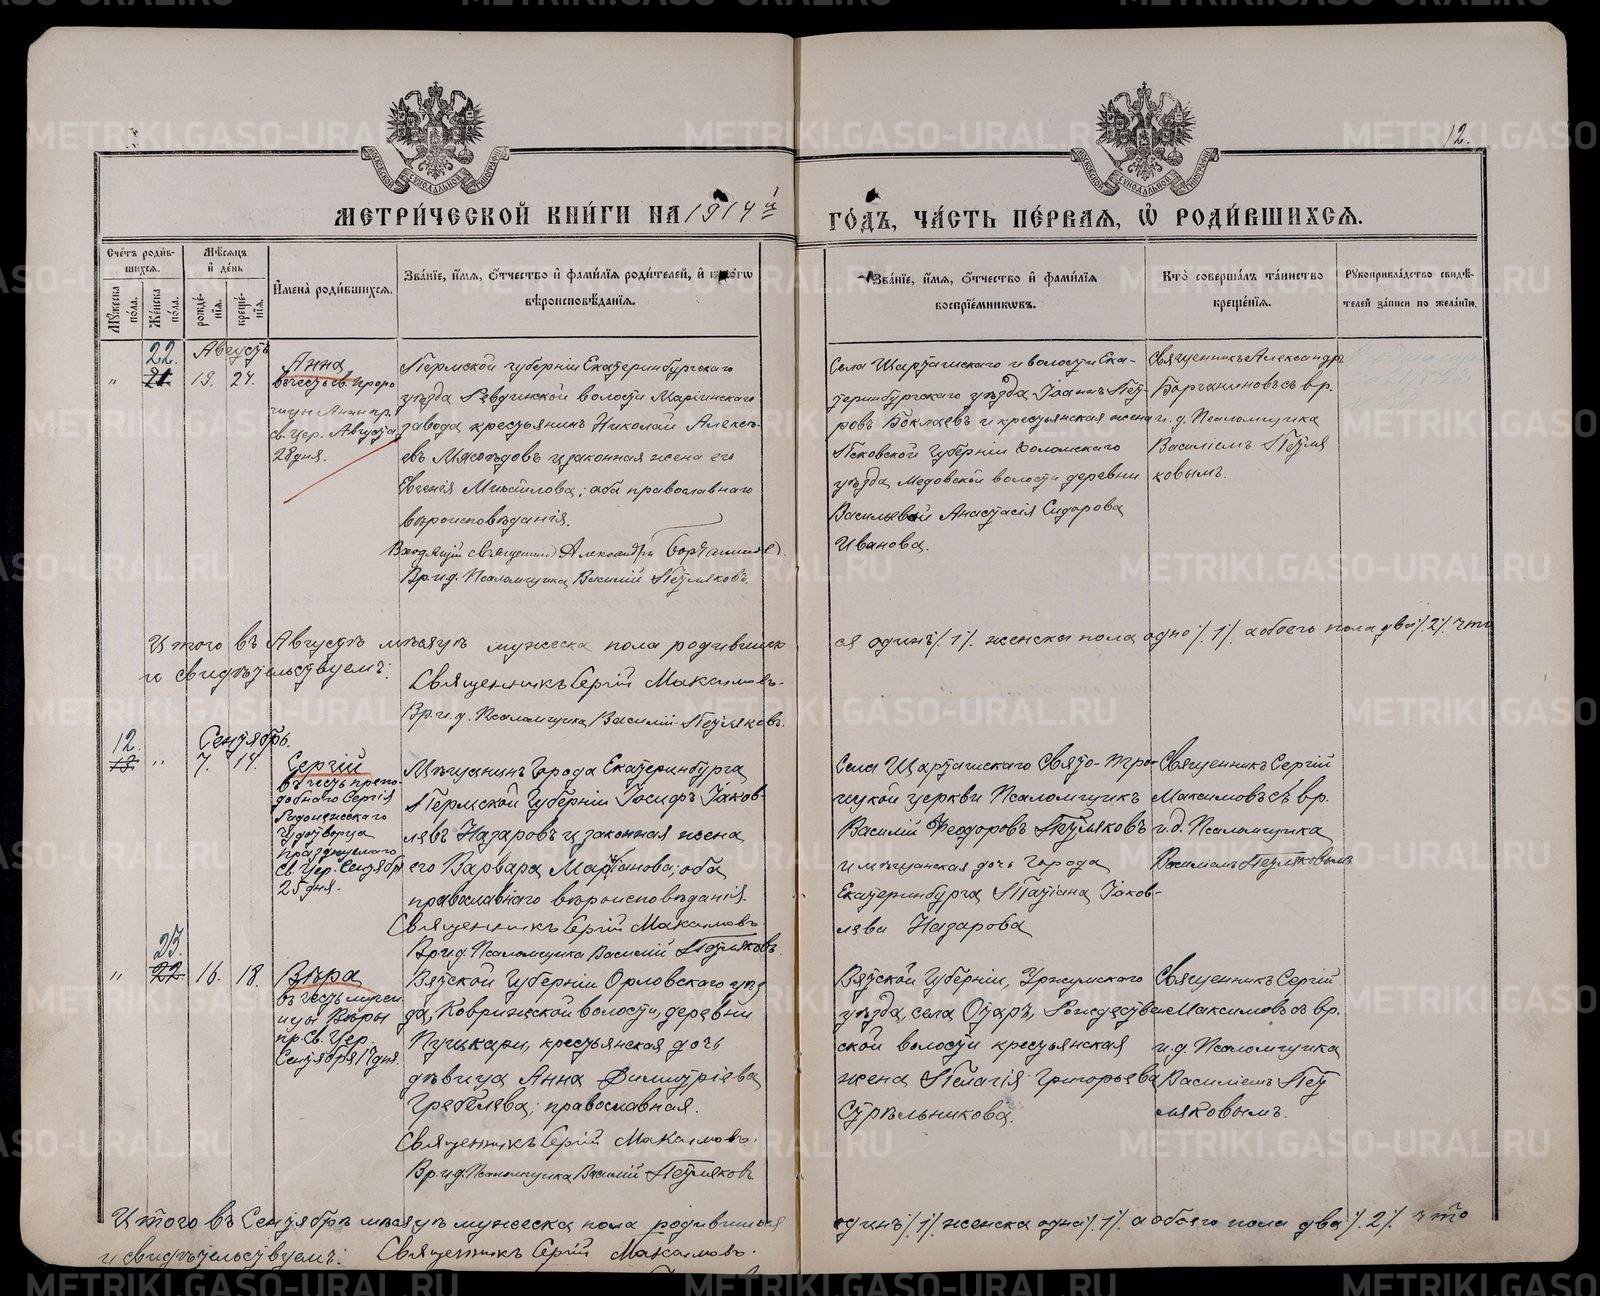 12.
МЕТРИЧЕСКОЙ КНИГИ НА 1914й
ГОДЪ, ЧАСТЬ ПЕРВАЯ, Ѡ РОДИВШИХСЯ.
Счетъ родив-
шихся.
Мужеска пола.
Женска пола.
Мѣсяцъ
и день
рожде-
нія.
креще-
нія.
Имена родившихся.
Званіе, имя, отчество и фамилія родителей, и какого
вѣроисповѣданія.
Званіе, имя, отчество и фамилія
воспріемниковъ.
Кто совершалъ таинство
крещенія.
Рукоприкладство свидѣ-
телей записи по желанію.
Августъ
22.
21.
"
19. 24.
Анна
въ честь св. проро
чицы Анны пр.
св. цер. Августа
28 дня.
Пермской губерніи Екатеринбургскаго
уѣзда Ревдинской волости Маріинскаго
завода крестьянинъ Николай Алексѣ-
евъ Мясоѣдовъ и законная жена его
Евгенія Михайлова; оба православнаго
вѣроисповѣданія.
священникъ Александръ
Вр. и д. Псаломщика Василій Петуляковъ
Села Шарташскаго и волости Ека-
теринбургскаго уѣзда Іоаннъ Пет-
ровъ и крестьянская жена
Псковской губерніи Холомскаго
уѣзда, Медовской волости деревни
Васильевой Анастасія Сидорова
Иванова.
Священникъ Александръ
съ вр.
и. д. Псаломщика
Василіемъ Петуля
ковымъ.
Итого въ Августѣ мѣсяцѣ мужеска пола родивших
ся одинъ /. 1 /. женска пола одно /. 1 /. а обоего пола два /. 2 /. что
и свидѣтельствуемъ:
Священникъ Сергій Максимовъ.
Вр. и. д. Псаломщика Василій Петуляковъ.
Сентябрь.
12.
13.
"
7. 14.
Сергій
въ честь препо-
добнаго Сергія
Радонежскаго
чудотворца
празднуемаго
св. цер. Сентября
25 дня.
Мѣщанинъ города Екатеринбурга
Пермской губерніи Іосифъ Іаков-
левъ Назаровъ и законная жена
его Варвара Мартіанова; оба
православнаго вѣроисповѣданія.
Священникъ Сергій Максимовъ
Вр. и д. Псаломщика Василій Петуляковъ.
Села Шарташскаго Свято-Тро-
ицкой церкви Псаломщикъ
Василій Феодоровъ Петуляковъ
и мѣщанская дочь города
Екатеринбурга Татіана Іаков-
лева Назарова
Священникъ Сергій
Максимовъ съ вр.
и. д. Псаломщика
Василіемъ Петуляковымъ.
23.
22.
"
16. 18.
Вѣра
въ честь мучен
ицы Вѣры
пр. св. цер.
Сентября 17 дня.
Вятской губерніи Орловскаго уѣз
да, Коврижской волости, деревни
крестьянская дочь
дѣвица Анна Димитріева
Гребенева; православная.
Священникъ Сергій Максимовъ.
Вр. и. д. Псаломщика Василій Петуляковъ.
Вятской губерніи, Уржумскаго
уѣзда, села Отаръ, Рождествен
ской волости крестьянская
жена Пелагія Григорьева
Стрѣльникова.
Священникъ Сергій
Максимовъ съ вр.
и. д. Псаломщика
Василіемъ Пету
ляковымъ.
Итого въ Сентябрѣ мѣсяцѣ мужеска пола родившихся
одинъ /. 1 /. женска одна /. 1 /. а обоего пола два /. 2 /. что
и свидѣтельствуемъ: Священникъ Сергій Максимовъ.
METRIKI.GASO-URAL.RU